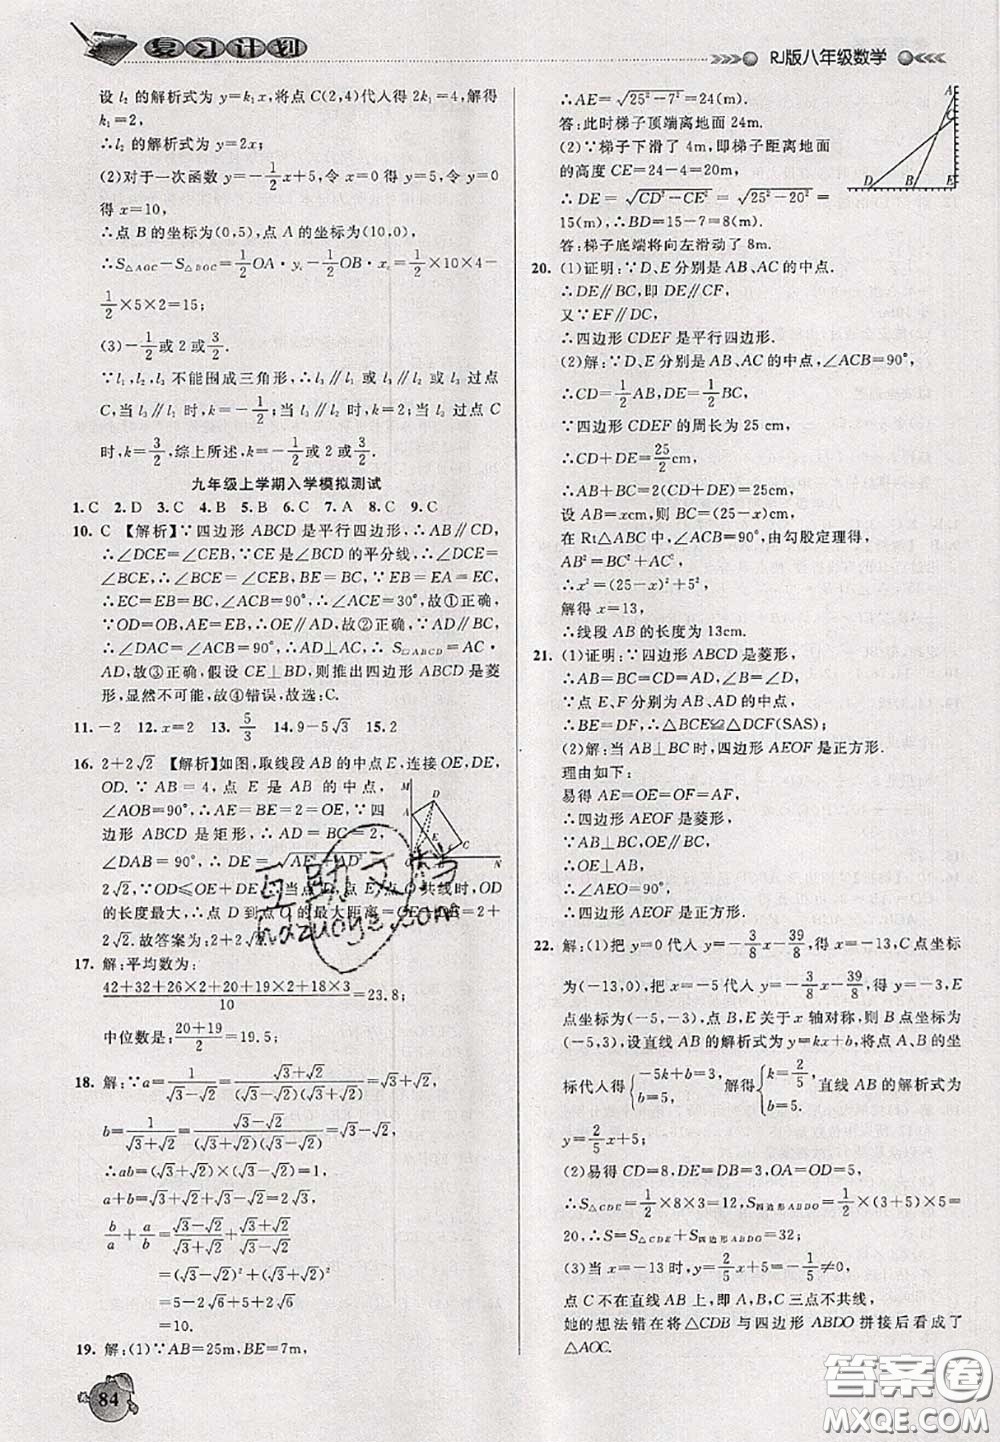 复习计划
RJ版八年级数学
设 l₂ 的解析式为 y=k₁x,将点 C(2,4)代入得 2k₁=4,解得
k₁=2,
∴l₂ 的解析式为 y=2x;
(2)对于一次函数 y=-1/2x+5,令 x=0 得 y=5,令 y=0
得 x=10,
∴点 B 的坐标为(0,5),点 A 的坐标为(10,0),
∴S△AOC-S△BOC=1/2OA·yc-1/2OB·xc=1/2×10×4-
1/2×5×2=15;
(3)-1/2或 2 或3/2.
∵l₁,l₂,l₃ 不能围成三角形,∴l₃∥l₁ 或l₃∥l₂ 或 l₃ 过点
C,当 l₃∥l₁ 时,k=-1/2;当 l₃∥l₂ 时,k=2;当 l₃ 过点 C
时,k=3/2,综上所述,k=-1/2或 2 或3/2.
九年级上学期入学模拟测试
1.C 2.D 3.C 4.B 5.B 6.C 7.A 8.C 9.C
10.C 【解析】∵四边形 ABCD 是平行四边形,∴AB∥CD,
∴∠DCE=∠CEB,∵CE 是∠BCD 的平分线,∴∠DCE=
∠BCE,∴∠CEB=∠BCE,∵∠BCE=60°,∴∠CEB=60°,
∴EC=EB=BC,∴∠ACB=90°,∴∠ACE=30°,故①正确,
∵OD=OB,AE=EB,∴AD=2OE,故②正确,∵AD∥BC,
∴∠DAC=∠ACB=90°,∴AD⊥AC,∴S▱ABCD=AC·
AD,故③正确,假设 CE⊥BD,则推出四边形 ABCD 是菱
形,显然不可能,故④错误,故选:C.
11.-2 12.x=2 13.5/3 14.9-5√3 15.2
16.2+2√2 【解析】如图,取线段 AB 的中点 E,连接 OE,DE,
OD.∵AB=4,点 E 是 AB 的中点,
∠AOB=90°,∴AE=BE=2=OE,∵四
边形 ABCD 是矩形,∴AD=BC=2,
∠DAB=90°,∴DE=√(AE²+AD²)=
2√2,∵OD≤OE+DE,∴当点 D,点 E,点 O 共线时,OD
的长度最大,∴点 D 到点 O 的最大距离=OE+DE=2+
2√2.故答案为:2+2√2.
17.解:平均数为:
(42+32+26×2+20+19×2+18×3)/10=23.8;
中位数是:(20+19)/2=19.5;
18.解:∵a=1/(√3-√2)=(√3+√2)/((√3-√2)(√3+√2))=√3+√2,
b=1/(√3+√2)=(√3-√2)/((√3+√2)(√3-√2))=√3-√2,
∴ab=(√3+√2)×(√3-√2)=1,
a+b=√3+√2+√3-√2=2√3,
b/a+a/b=(√3-√2)/(√3+√2)+(√3+√2)/(√3-√2)
=(√3-√2)²+(√3+√2)²
=5-2√6+5+2√6
=10.
19.解:(1)∵AB=25m,BE=7m,
84
∴AE=√(25²-7²)=24(m).
答:此时梯子顶端离地面 24m.
(2)∵梯子下滑了 4m,即梯子距离地面
的高度 CE=24-4=20m,
∴DE=√(CD²-CE²)=√(25²-20²)=
15(m),∴BD=15-7=8(m).
答:梯子底端将向左滑动了 8m.
20.(1)证明:∵D、E 分别是 AB、AC 的中点.
∴DE∥BC,即 DE∥CF,
又∵EF∥DC,
∴四边形 CDEF 是平行四边形.
(2)解:∵D、E 分别是 AB、AC 的中点,∠ACB=90°,
∴CD=1/2AB,DE=1/2BC,
∵四边形 CDEF 的周长为 25 cm,
∴CD+DE=25/2cm,
∴AB+BC=25cm,
设 AB=xcm,则 BC=(25-x)cm,
在 Rt△ABC 中,∠ACB=90°,由勾股定理得,
AB²=BC²+AC²,
∴x²=(25-x)²+5²,
解得 x=13,
∴线段 AB 的长度为 13cm.
21.(1)证明:∵四边形 ABCD 是菱形,
∴AB=BC=CD=AD,∠B=∠D,
∵点 E、F 分别为 AB、AD 的中点,
∴BE=DF,∴△BCE≌△DCF(SAS);
(2)解:当 AB⊥BC 时,四边形 AEOF 是正方形.
理由如下:
易得 AE=OE=OF=AF,
∴四边形 AEOF 是菱形,
∵AB⊥BC,OE∥BC,
∴OE⊥AB,
∴∠AEO=90°,
∴四边形 AEOF 是正方形.
22.解:(1)把 y=0 代入 y=-3/8x-39/8,得 x=-13,C 点坐标
为(-13,0),把 x=-5 代入 y=-3/8x-39/8,得 y=-3,E
点坐标为(-5,-3),点 B,E 关于 x 轴对称,则 B 点坐标为
(-5,3),设直线 AB 的解析式为 y=kx+b,将点 A、B 的坐
标代入得{-5k+b=3, b=5. 解得{k=2/5, b=5. 直线 AB 的解析式为
y=2/5x+5;
(2)易得 CD=8,DE=DB=3,OA=OD=5.
∴S△CDE=1/2×8×3=12,S四边形ABDO=1/2×(3+5)×5=
20,∴S=S△CDE+S四边形ABDO=32;
(3)当 x=-13 时,y=2/5x+5=-1/5≠0,
点 C 不在直线 AB 上,即 A,B,C 三点不共线,
她的想法错在将△CDB 与四边形 ABDO 拼接后看成了
△AOC.
A
C
D
B
E
M
D
A
E
C
O
B
N
互助文档
hazuoye.com
答案圈
MXQE.COM